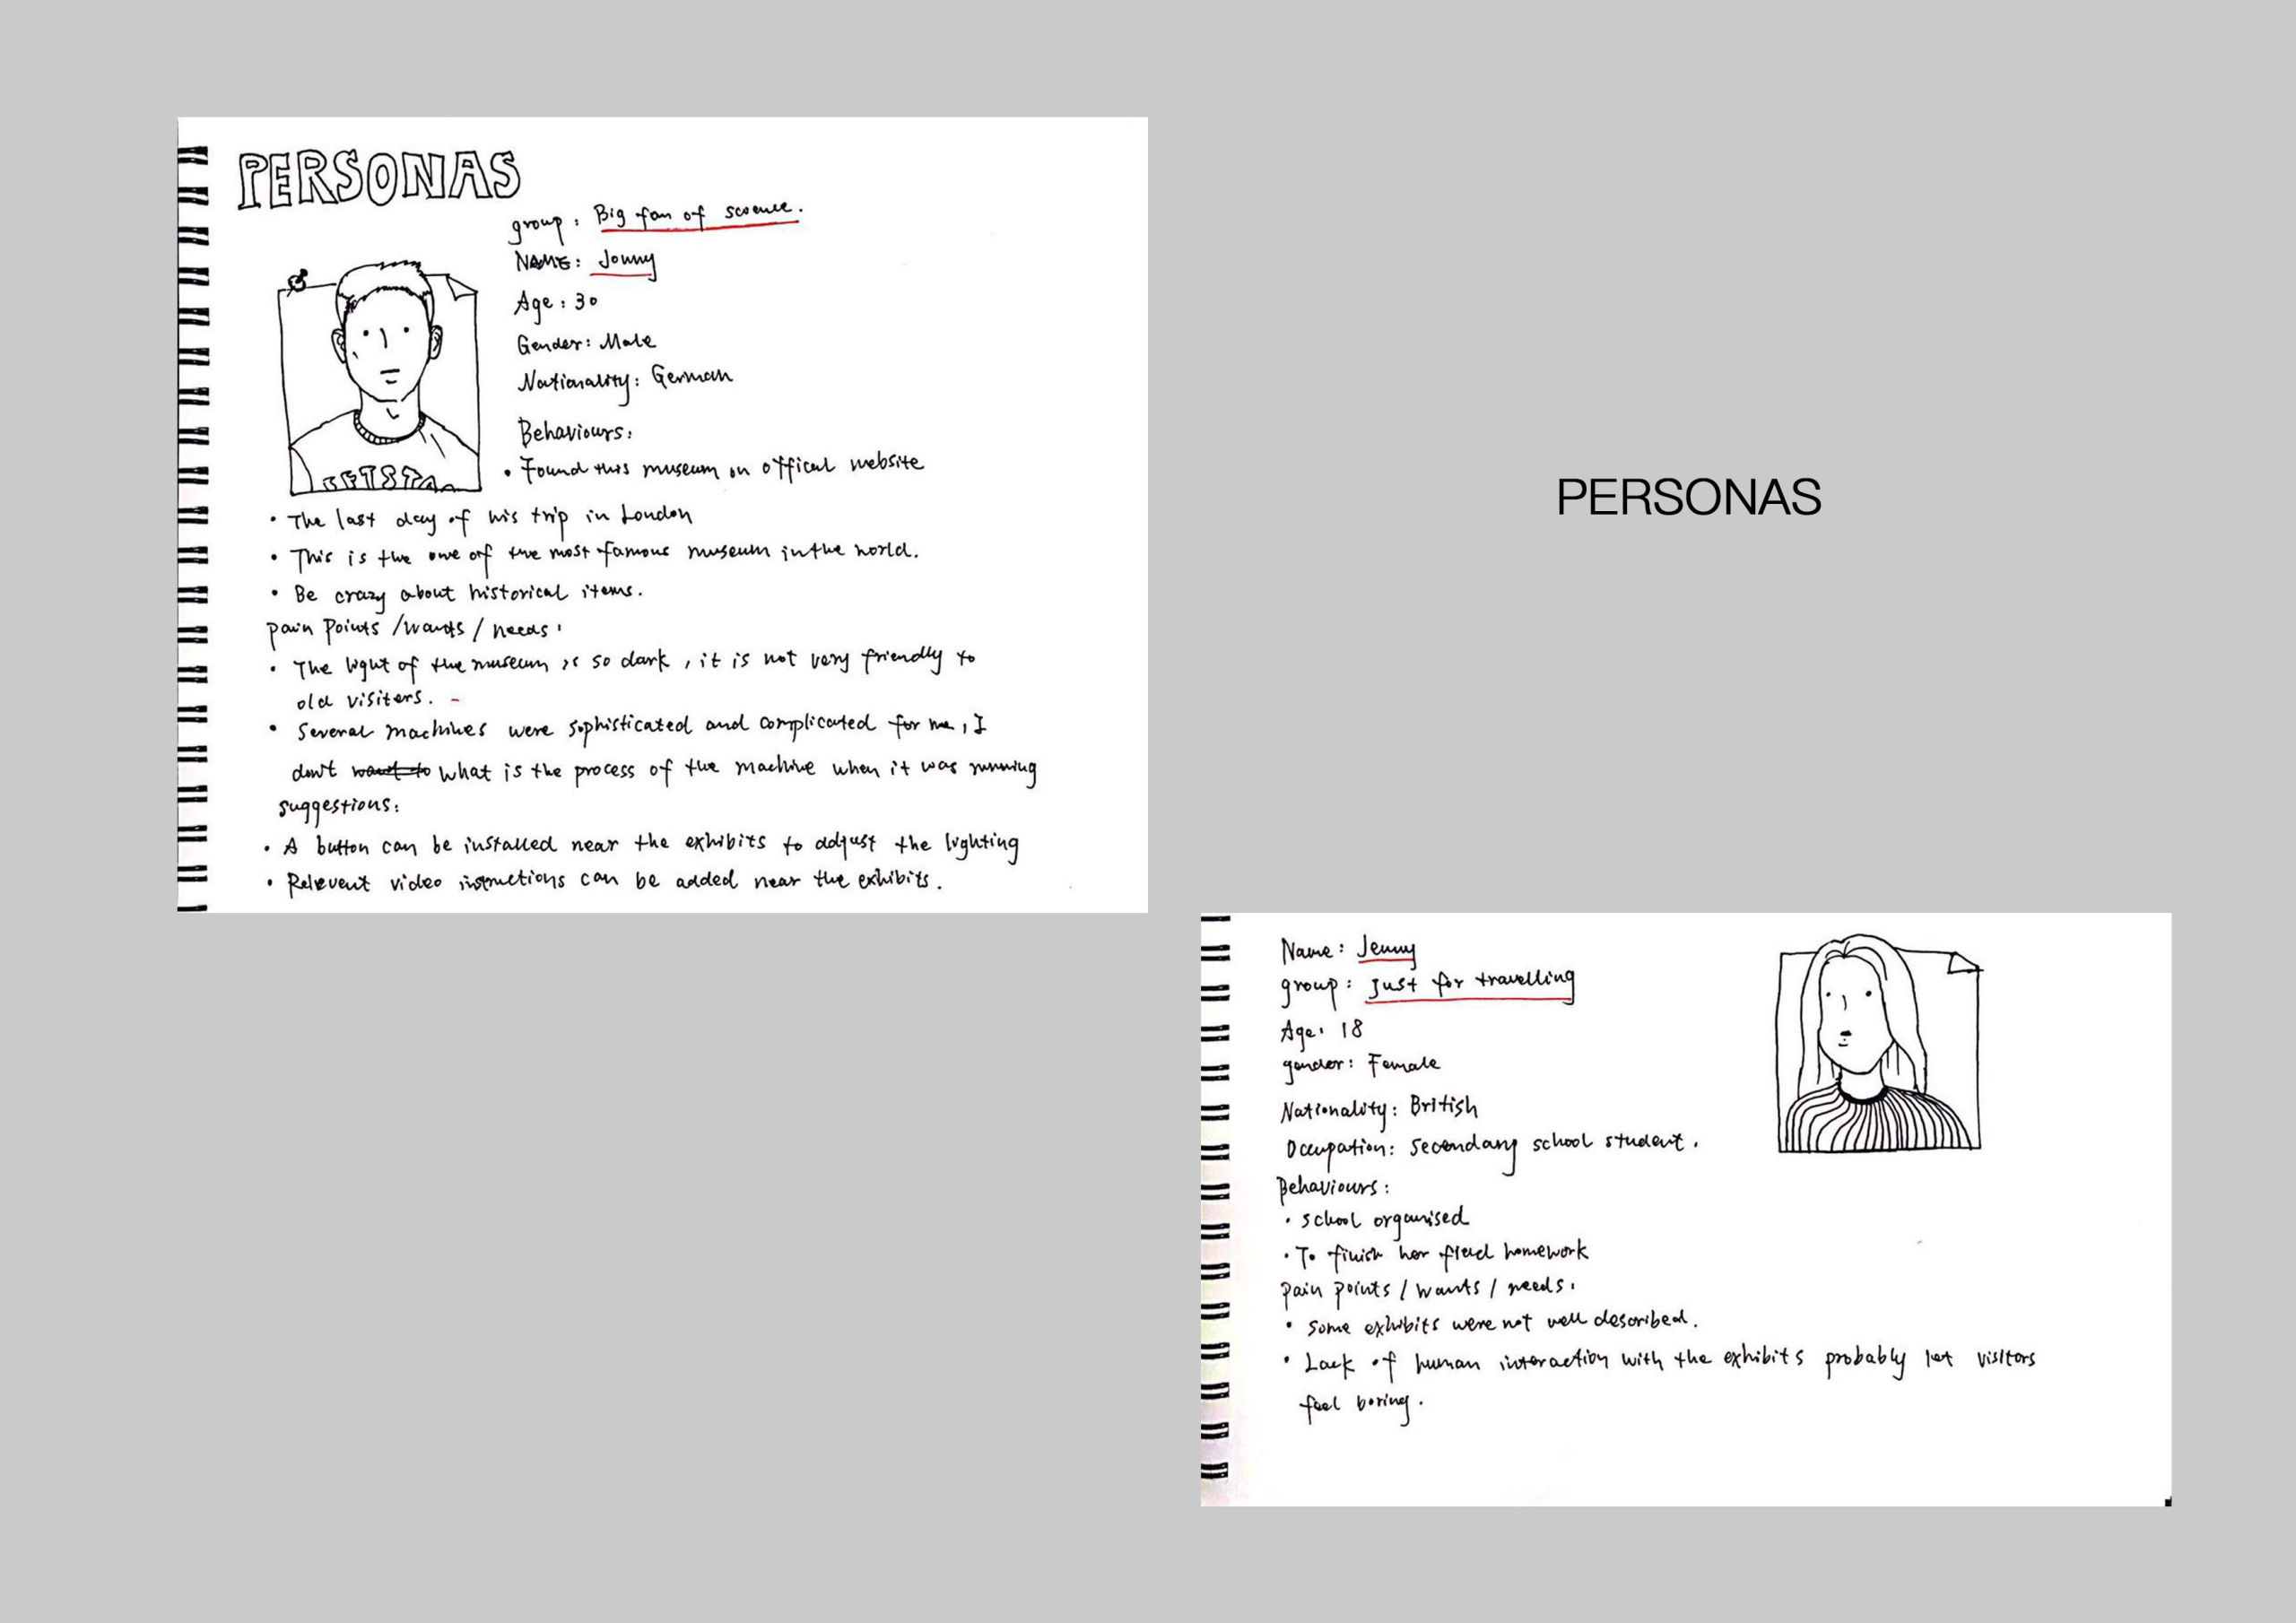 PERSONAS
group: Big fan of science.
NAME: Jonny
Age: 30
Gender: Male
Nationality: German
Behaviours:
• Found this museum on offical website
• The last day of his trip in London
• This is the one of the most famous museum in the world.
• Be crazy about historical items.
pain points / wants / needs:
• The light of the museum is so dark, it is not very friendly to
old visiters. -
• Several machines were sophisticated and complicated for me, I
don't want to what is the process of the machine when it was running
suggestions:
• A button can be installed near the exhibits to adjust the lighting
• Relevent video instructions can be added near the exhibits.
PERSONAS
Name: Jenny
group: Just for travelling
Age: 18
gender: Female
Nationality: British
Occupation: Secondary school student.
Behaviours:
• school organised
• To finish her field homework
pain points / wants / needs:
• Some exhibits were not well described.
• Lack of human interaction with the exhibits probably let visitors
feel boring.